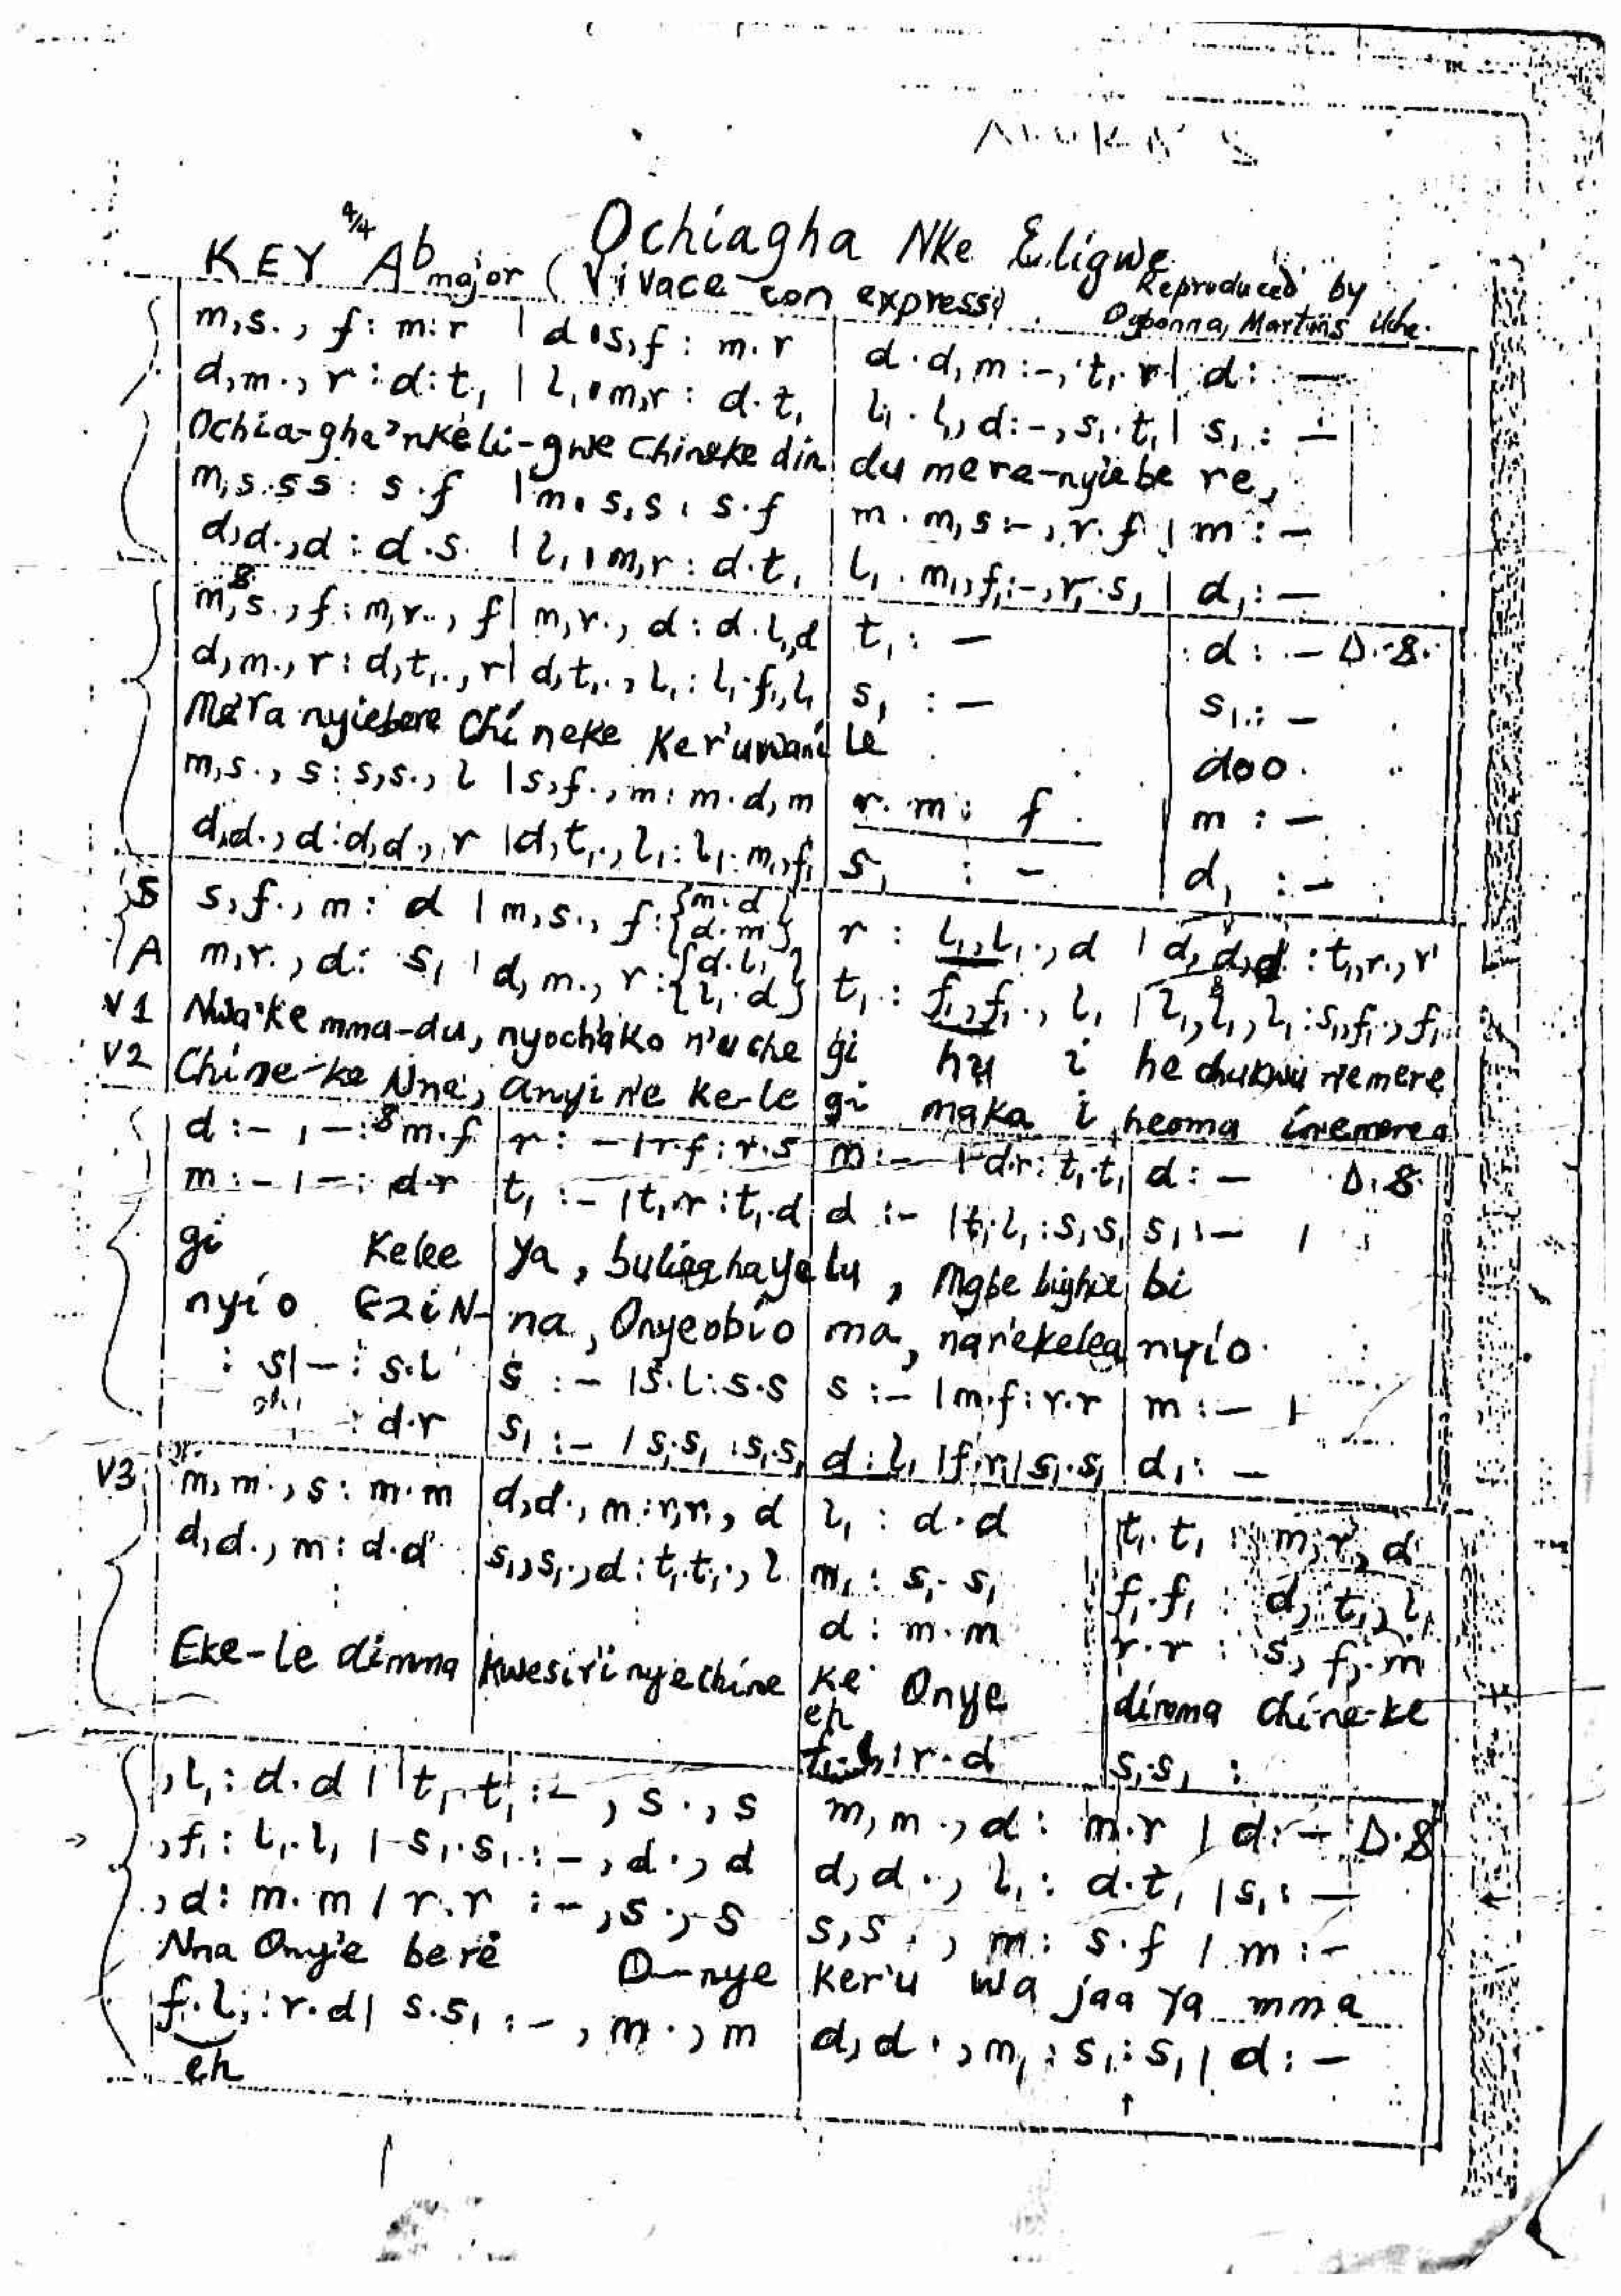 Ochiagha Nke Eligwe
4/4
KEY Ab major (Vivace con express)
Reproduced by
Ogbonna, Martins
m,s., f : m : r | d . s,f : m . r | d . d,m :-, t₁. r | d : —
d,m., r : d : t₁ | l₁ . m,r : d . t₁ | l₁ . l₁, d :-, s₁. t₁ | s₁ : —
Ochia-gha'nkeli-gwe Chineke din du mere-nyiebe re,
m,s.ss : s.f | m . s,s : s.f | m . m,s :-, r.f | m : —
d,d.,d : d.s. | l₁ . m,r : d.t₁ | l₁ . m₁,f₁:-, r₁.s₁ | d₁ : —
m,s., f : m,r., f | m,r., d : d.l₁,d | t₁ : — | : d : — D.S.
d,m., r : d,t₁., r | d,t₁., l₁ : l₁.f₁,l₁ | s₁ : — | s₁ : —
Mera nyiebere Chineke Ker'uwani le doo.
m,s., s : s,s., l | s,f., m : m.d,m | r.m : f | m : —
d,d., d : d,d., r | d,t₁., l₁ : l₁. m₁,f₁ | s₁ : - | d₁ : —
S s,f., m : d | m,s., f : {m.d} {d.m} | r : l₁,l₁., d | d, d,d : t₁,r., r
A m,r., d : s₁ | d, m., r : {d.l₁} {l₁.d} | t₁ : f₁,f₁., l₁ | l₁,l₁, l₁ : s₁,f₁., f₁
V1 Nwa'ke mma-du, nyochako n'uche gi hu i he chukwu nemere
V2 Chine-ke Nna, anyi n'e ke-le gi maka i heoma inemere
d :- , - : m.f | r : - | r.f : r.s | m :- | d.r : t₁.t₁ | d : — D.S.
m :- | - : d.r | t₁ :- | t₁.r : t₁.d | d :- | t₁.l₁ : s₁.s₁ | s₁ : —
gi Kelee ya, bulieghaye lu, Mgbe bighie bi
nyio EziN- na, Onyeobio ma, nar'ekelea nyio.
: s | — : s.l | s :- | s.l : s.s | s :- | m.f : r.r | m :- |
: d.r | s₁ :- | s₁.s₁ : s₁.s₁ | d : l₁ | f₁.r₁ | s₁.s₁ | d₁ : —
V3 m, m., s : m.m | d,d., m : r,r., d | l₁ : d.d | t₁. t₁ : m, r, d
d,d., m : d.d | s₁,s₁., d : t₁.t₁., l | m₁ : s₁. s₁ | f₁.f₁ : d, t₁, l₁
d : m.m | r.r : s, f, m
Eke-le dimma kwesiri nyechine ke Onye dimma chine-ke
eh
r.d | s₁.s₁ :
, l₁ : d.d | t₁. t₁ :- , s., s | m, m., d : m.r | d :- D.S
, f₁ : l₁.l₁ | s₁.s₁ :- , d., d | d, d., l₁ : d.t₁ | s₁ : —
, d : m.m | r.r :- , s., s | s,s., m : s.f | m :-
Nna Onyie bere O-nye ker'u wa jaa ya mma
f₁.l₁ : r.d | s.s₁ :- , m., m | d,d., m₁ : s₁ : s₁ | d : —
eh